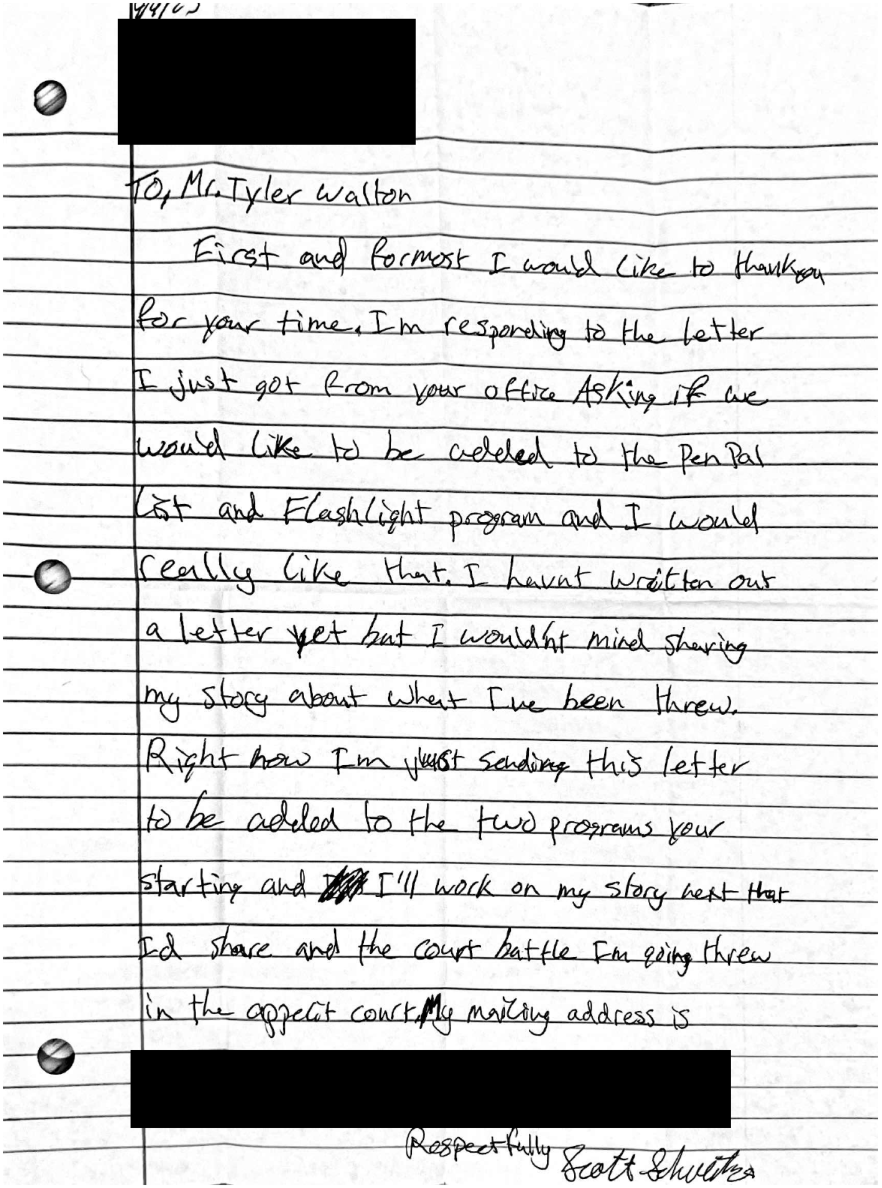 To, Mr. Tyler Walton
First and formost I would like to thank you
for your time. Im responding to the letter
I just got from your office Asking if we
would like to be added to the Pen Pal
List and Flashlight program and I would
really like that. I havnt written out
a letter yet but I wouldn't mind sharing
my story about what I've been threw.
Right now Im just sending this letter
to be added to the two programs your
starting and I'll work on my story next that
Id share and the court battle Im going threw
in the appelit court. My mailing address is
Respectfully
Scott